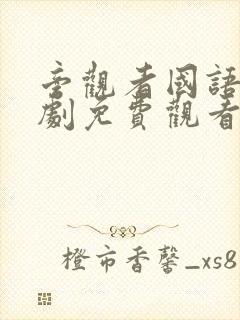 旁觀者國語
劇免費觀看
橙市香馨_xs8